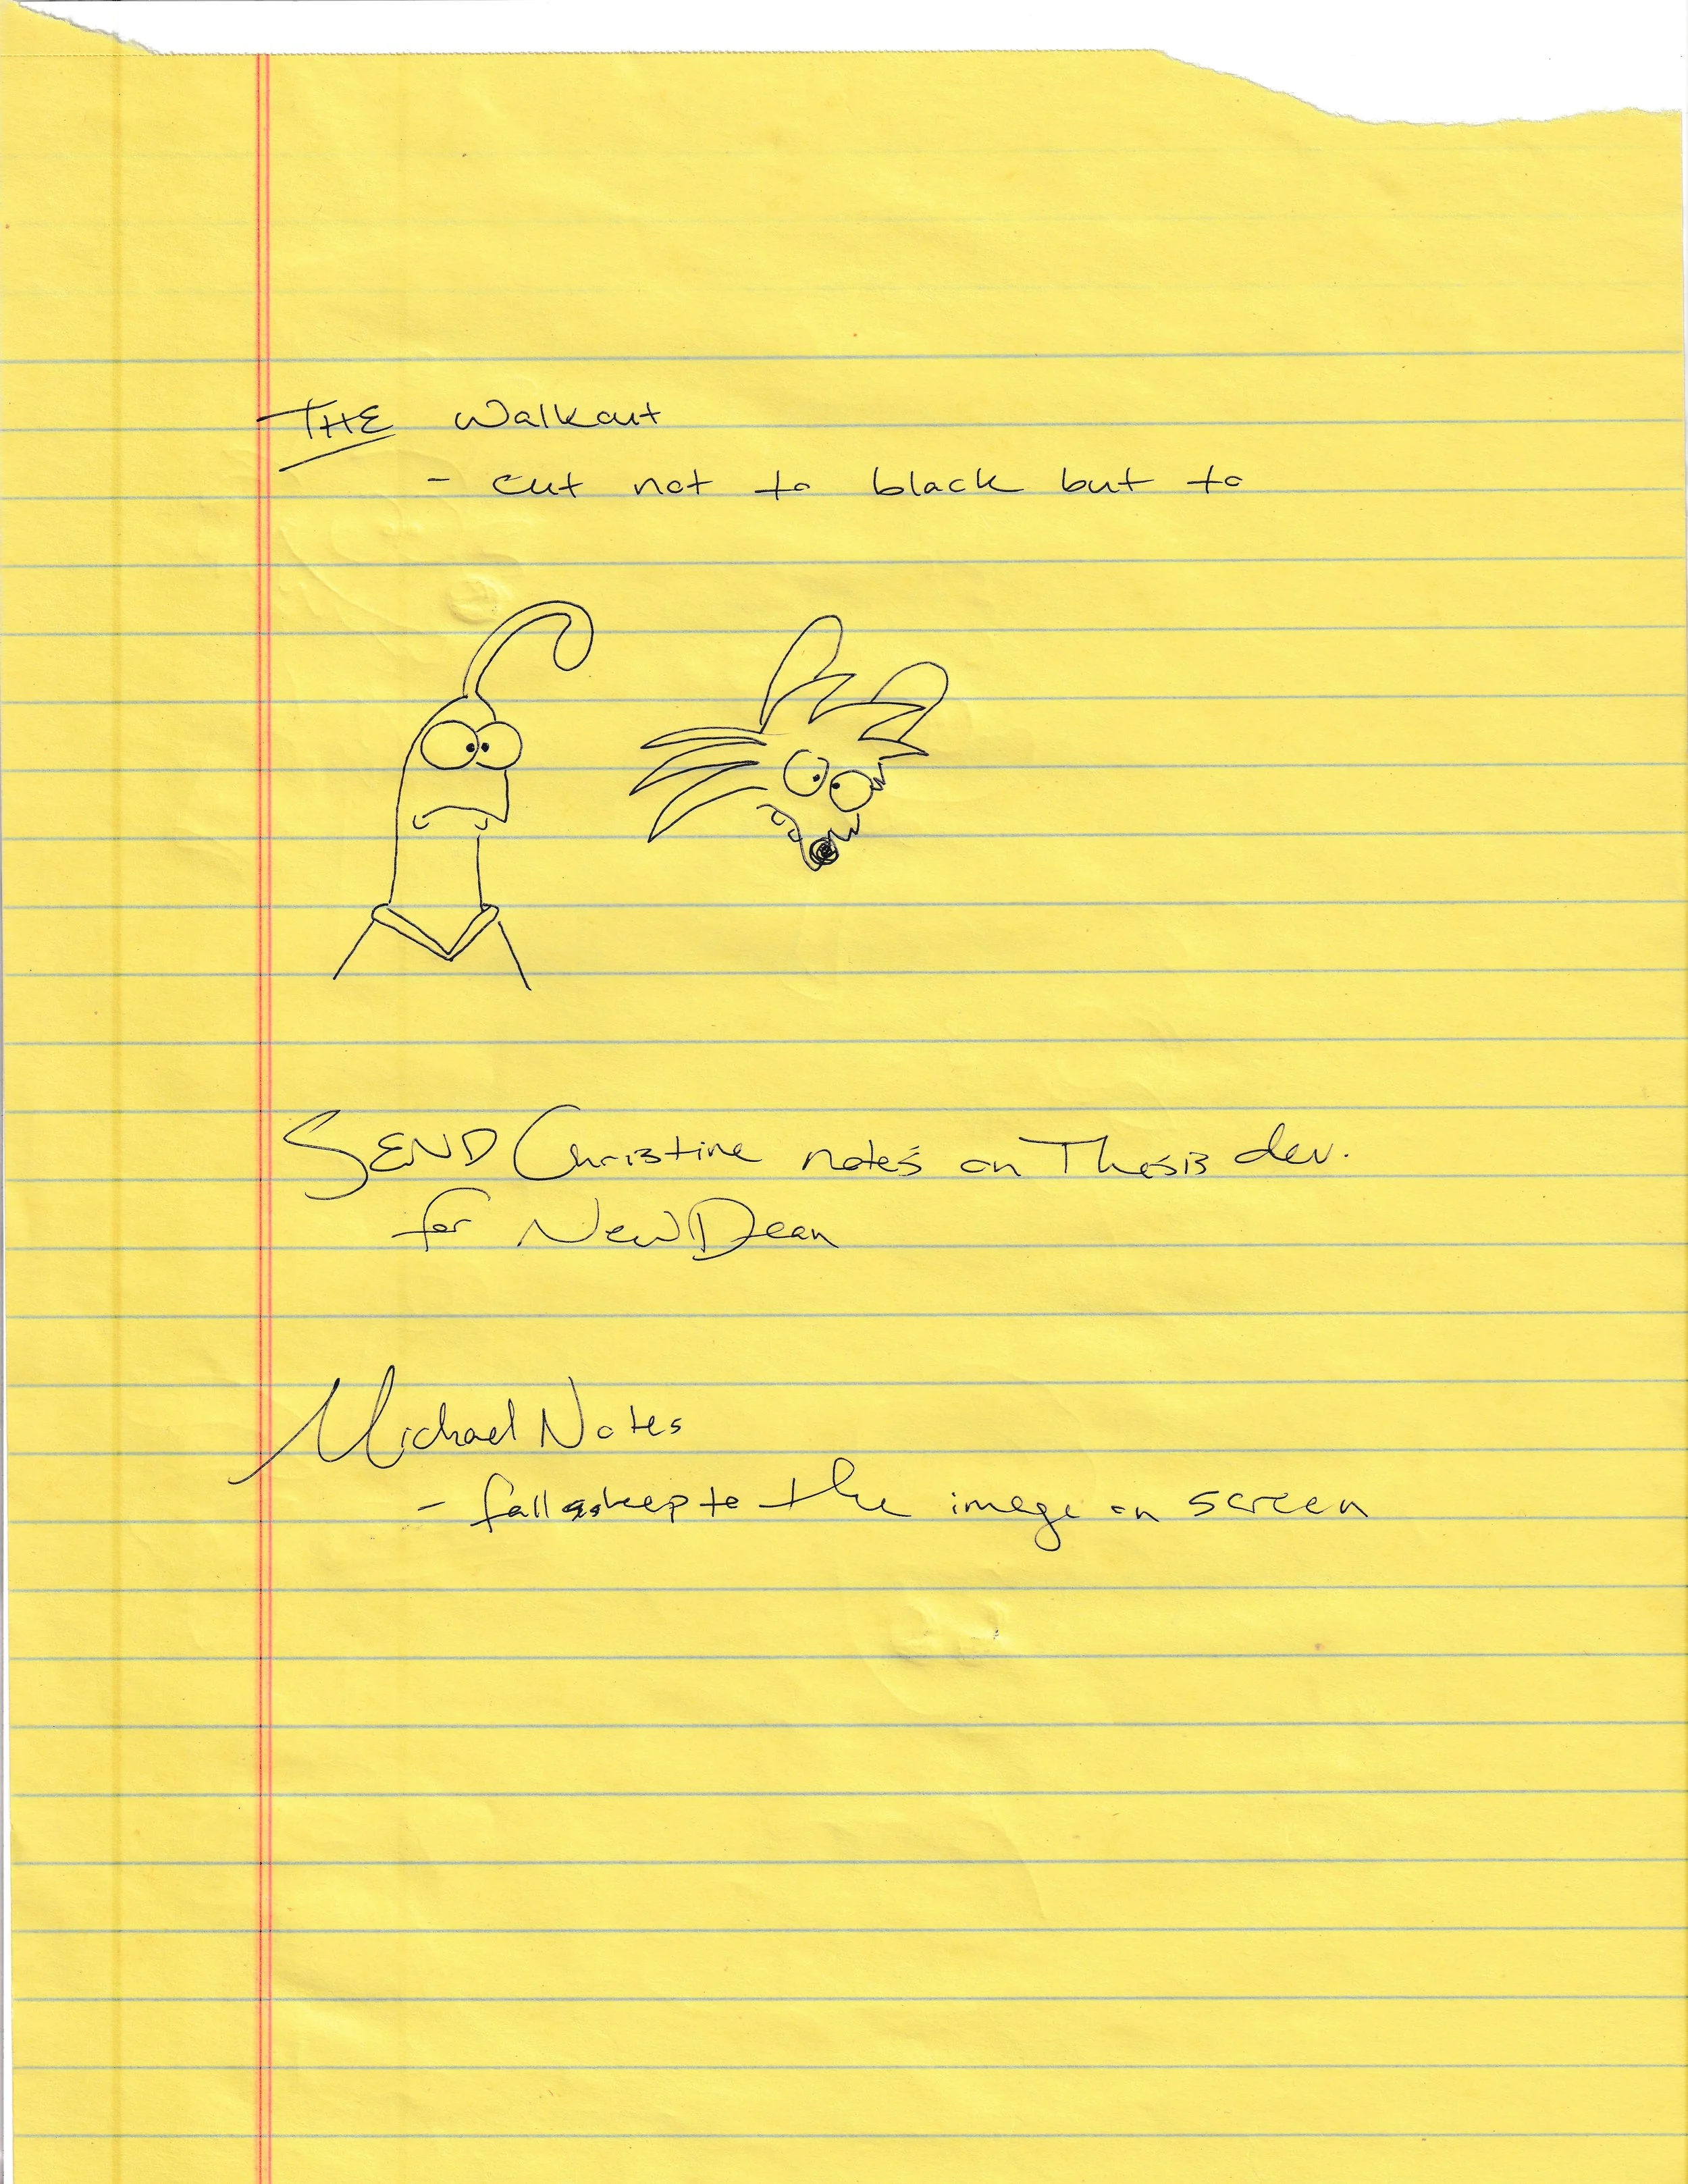 THE Walkout
- cut not to black but to
SEND Christine notes on Thesis dev.
for New Dean
Michael Notes
- fall asleep to the image on screen